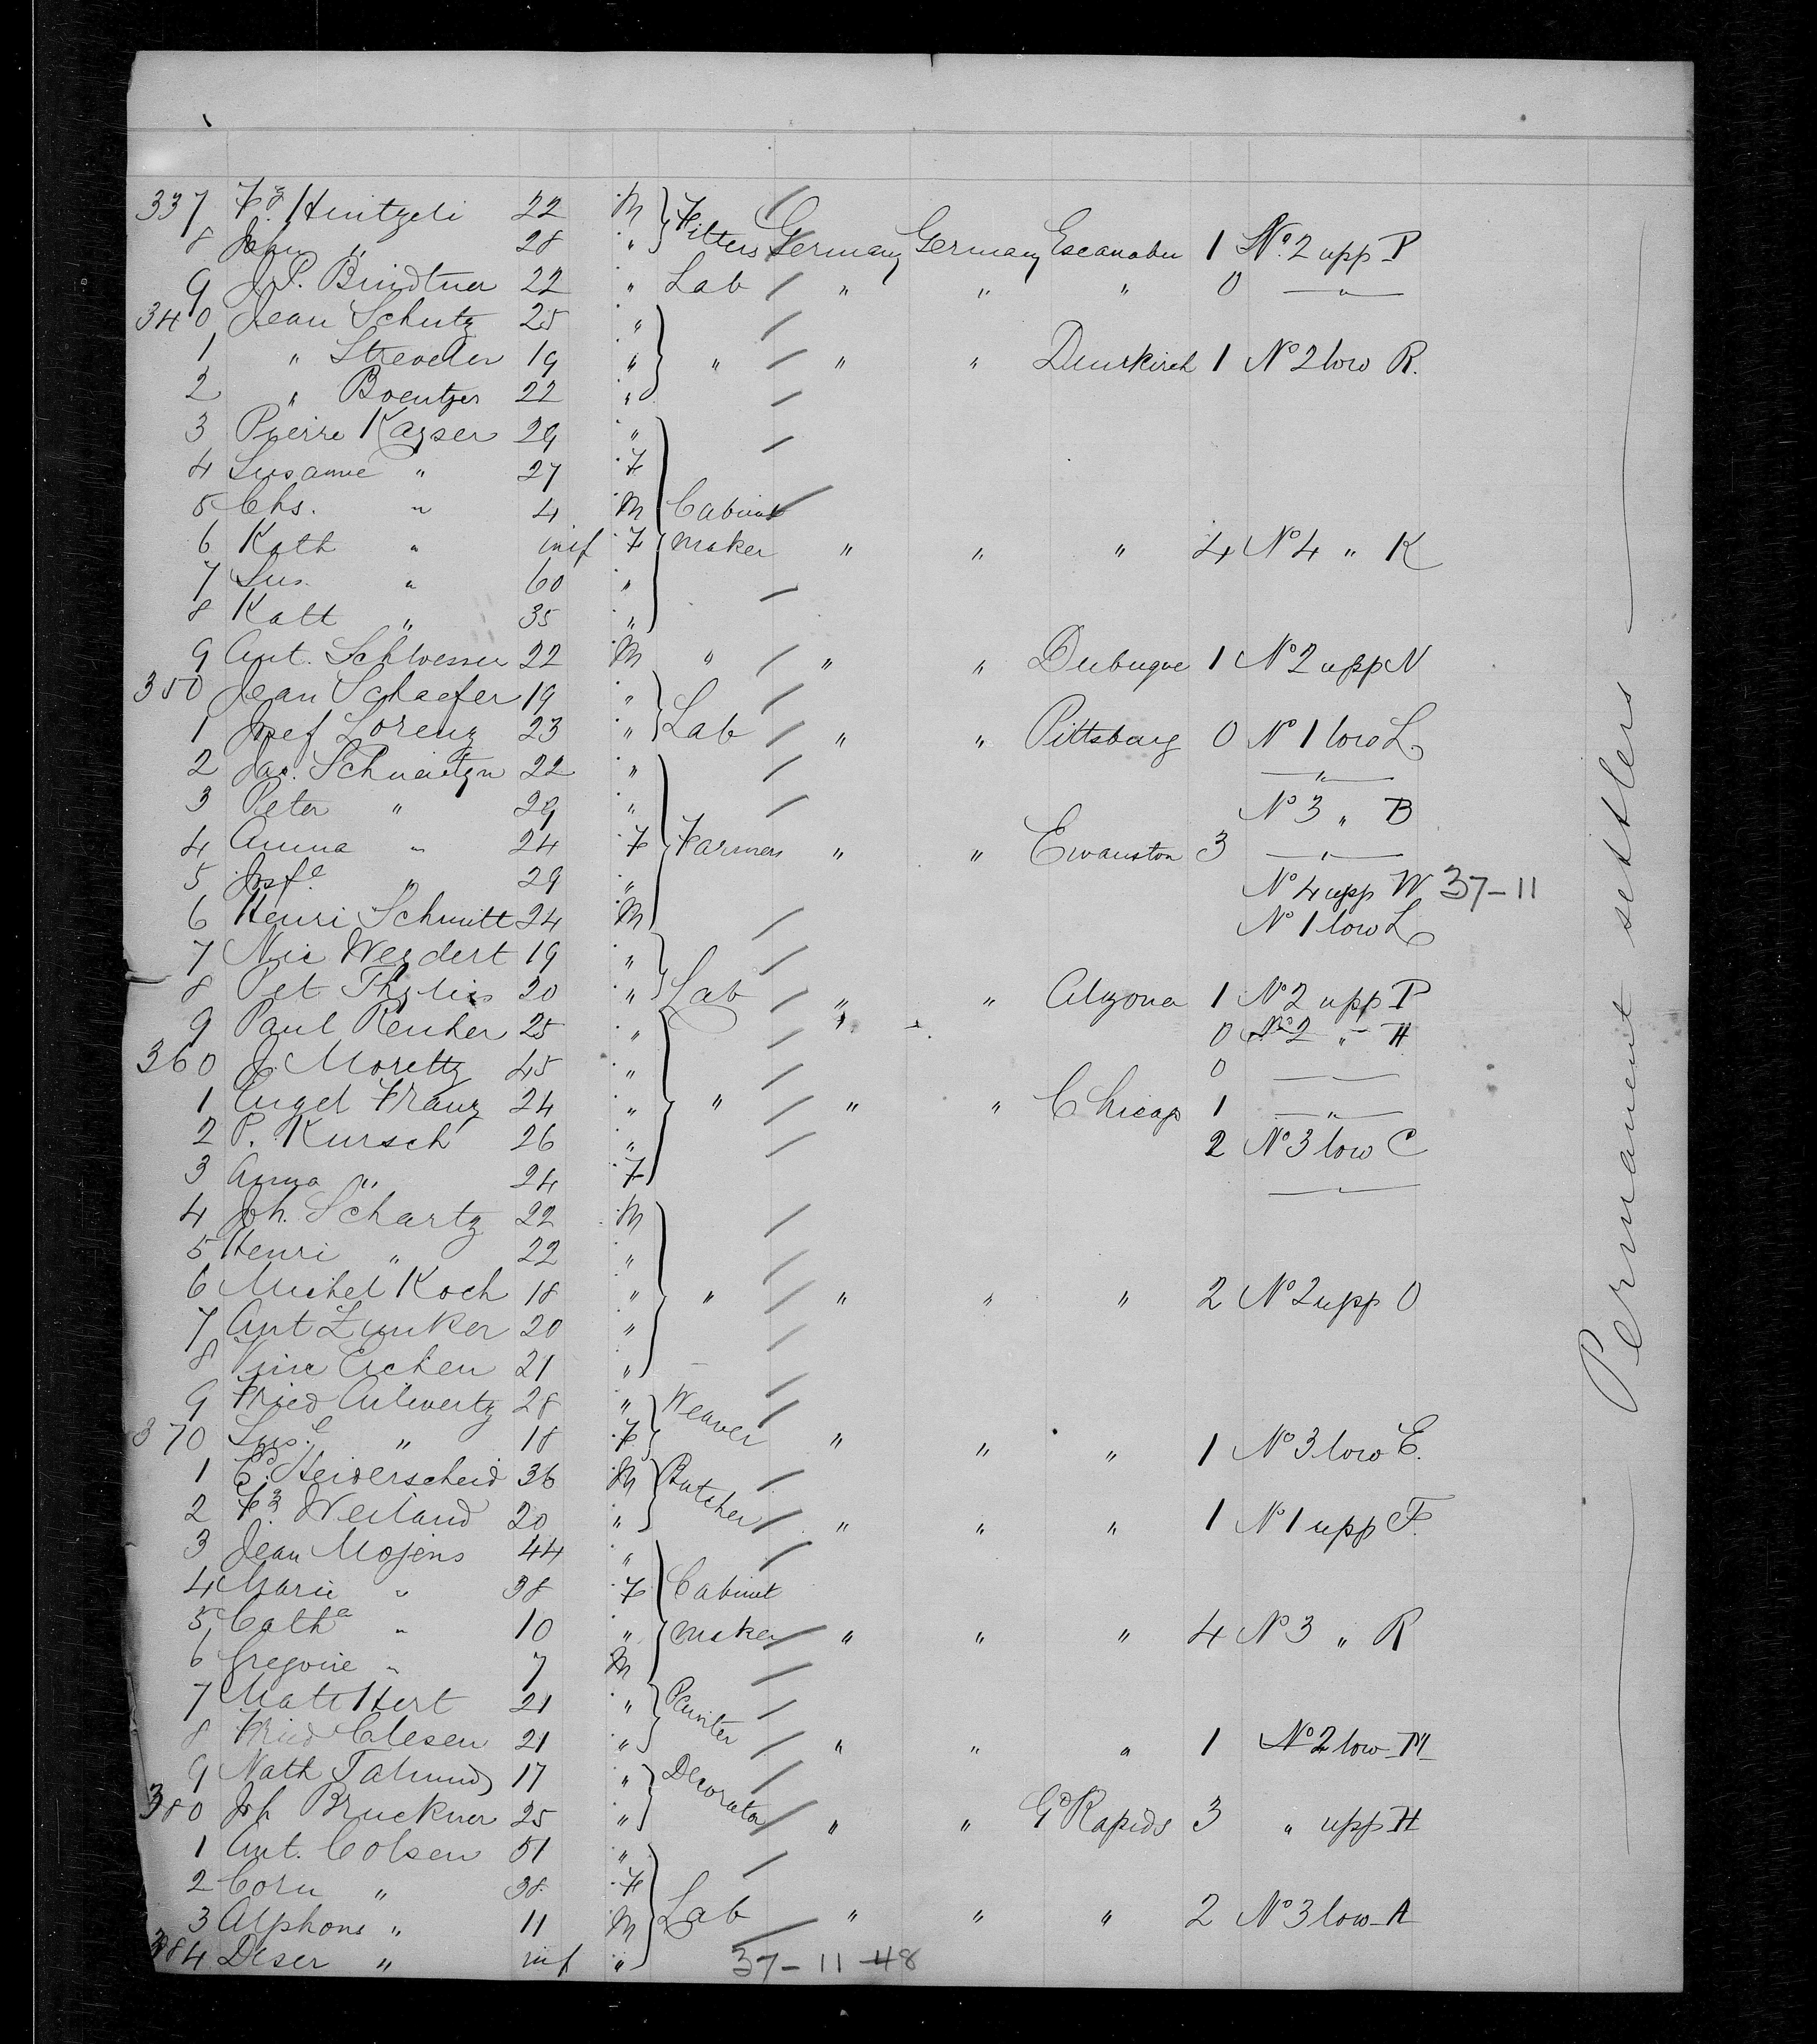 337 Fz. Hintzeli 22 M Fitters Germany Germany Escanaba 1 No. 2 upp P
8 John " 28 "
9 J. P. Bindtner 22 " Lab " " " 0 "
340 Jean Schutz 25 "
1 " Streveler 19 " " " " Dunkirch 1 No 2 low R.
2 " Boentzer 22 "
3 Pierre Kayser 29 "
4 Susanne " 27 F
5 Chs. " 4 M Cabinet
6 Kath " inf F maker " " " 4 No 4 " K
7 Sus. " 60 "
8 Katt " 35 "
9 Ant. Schloesser 22 M " " " Dubuque 1 No 2 upp N
350 Jean Schaefer 19 "
1 Josef Lorenz 23 " Lab " " Pittsburg 0 No 1 low L
2 Jac. Schneitzn 22 " "
3 Peter " 29 " No 3 " B
4 Anna " 24 F Farmers " " Ewanston 3 "
5 Josfe " 29 " No 4 upp W 37-11
6 Henri Schmitt 24 M No 1 low L
7 Nic Weydert 19 "
8 Pet Thylis 20 " Lab " " Algona 1 No 2 upp P
9 Paul Reuter 25 " 0 No 2 " H
360 J. Moretty 45 " 0
1 Angel Franz 24 " " " " Chicago 1 "
2 P. Kursch 26 " 2 No 3 low C
3 Anna " 24 F "
4 Joh. Schartz 22 M
5 Henri " 22 "
6 Michel Koch 18 " " " " " 2 No 2 upp O
7 Ant Zunker 20 "
8 Eichen 21 "
9 Fried 28 " Weaver
370 " 18 F " " " 1 No 3 low E.
1 Ed. Heiderscheid 36 M Butcher
2 Fz. Weiland 20 " " " " 1 No 1 upp F.
3 Jean Mojens 44 "
4 Marie " 38 F Cabinet
5 Catha " 10 " maker " " " 4 No 3 " R
6 Gregoire " 7 M
7 Matt Hert 21 " Painter
8 Fried Clesen 21 " " " " 1 No 2 low M
9 Nath Talmud 17 " Decorator
380 Joh Bruckner 25 " " " Gd Rapids 3 " upp H
1 Ant. Colsen 51 "
2 Corn " 38 F
3 Alphons " 11 M Lab " " " 2 No 3 low A
384 Deser " inf "
37-11-48
Permanent settlers